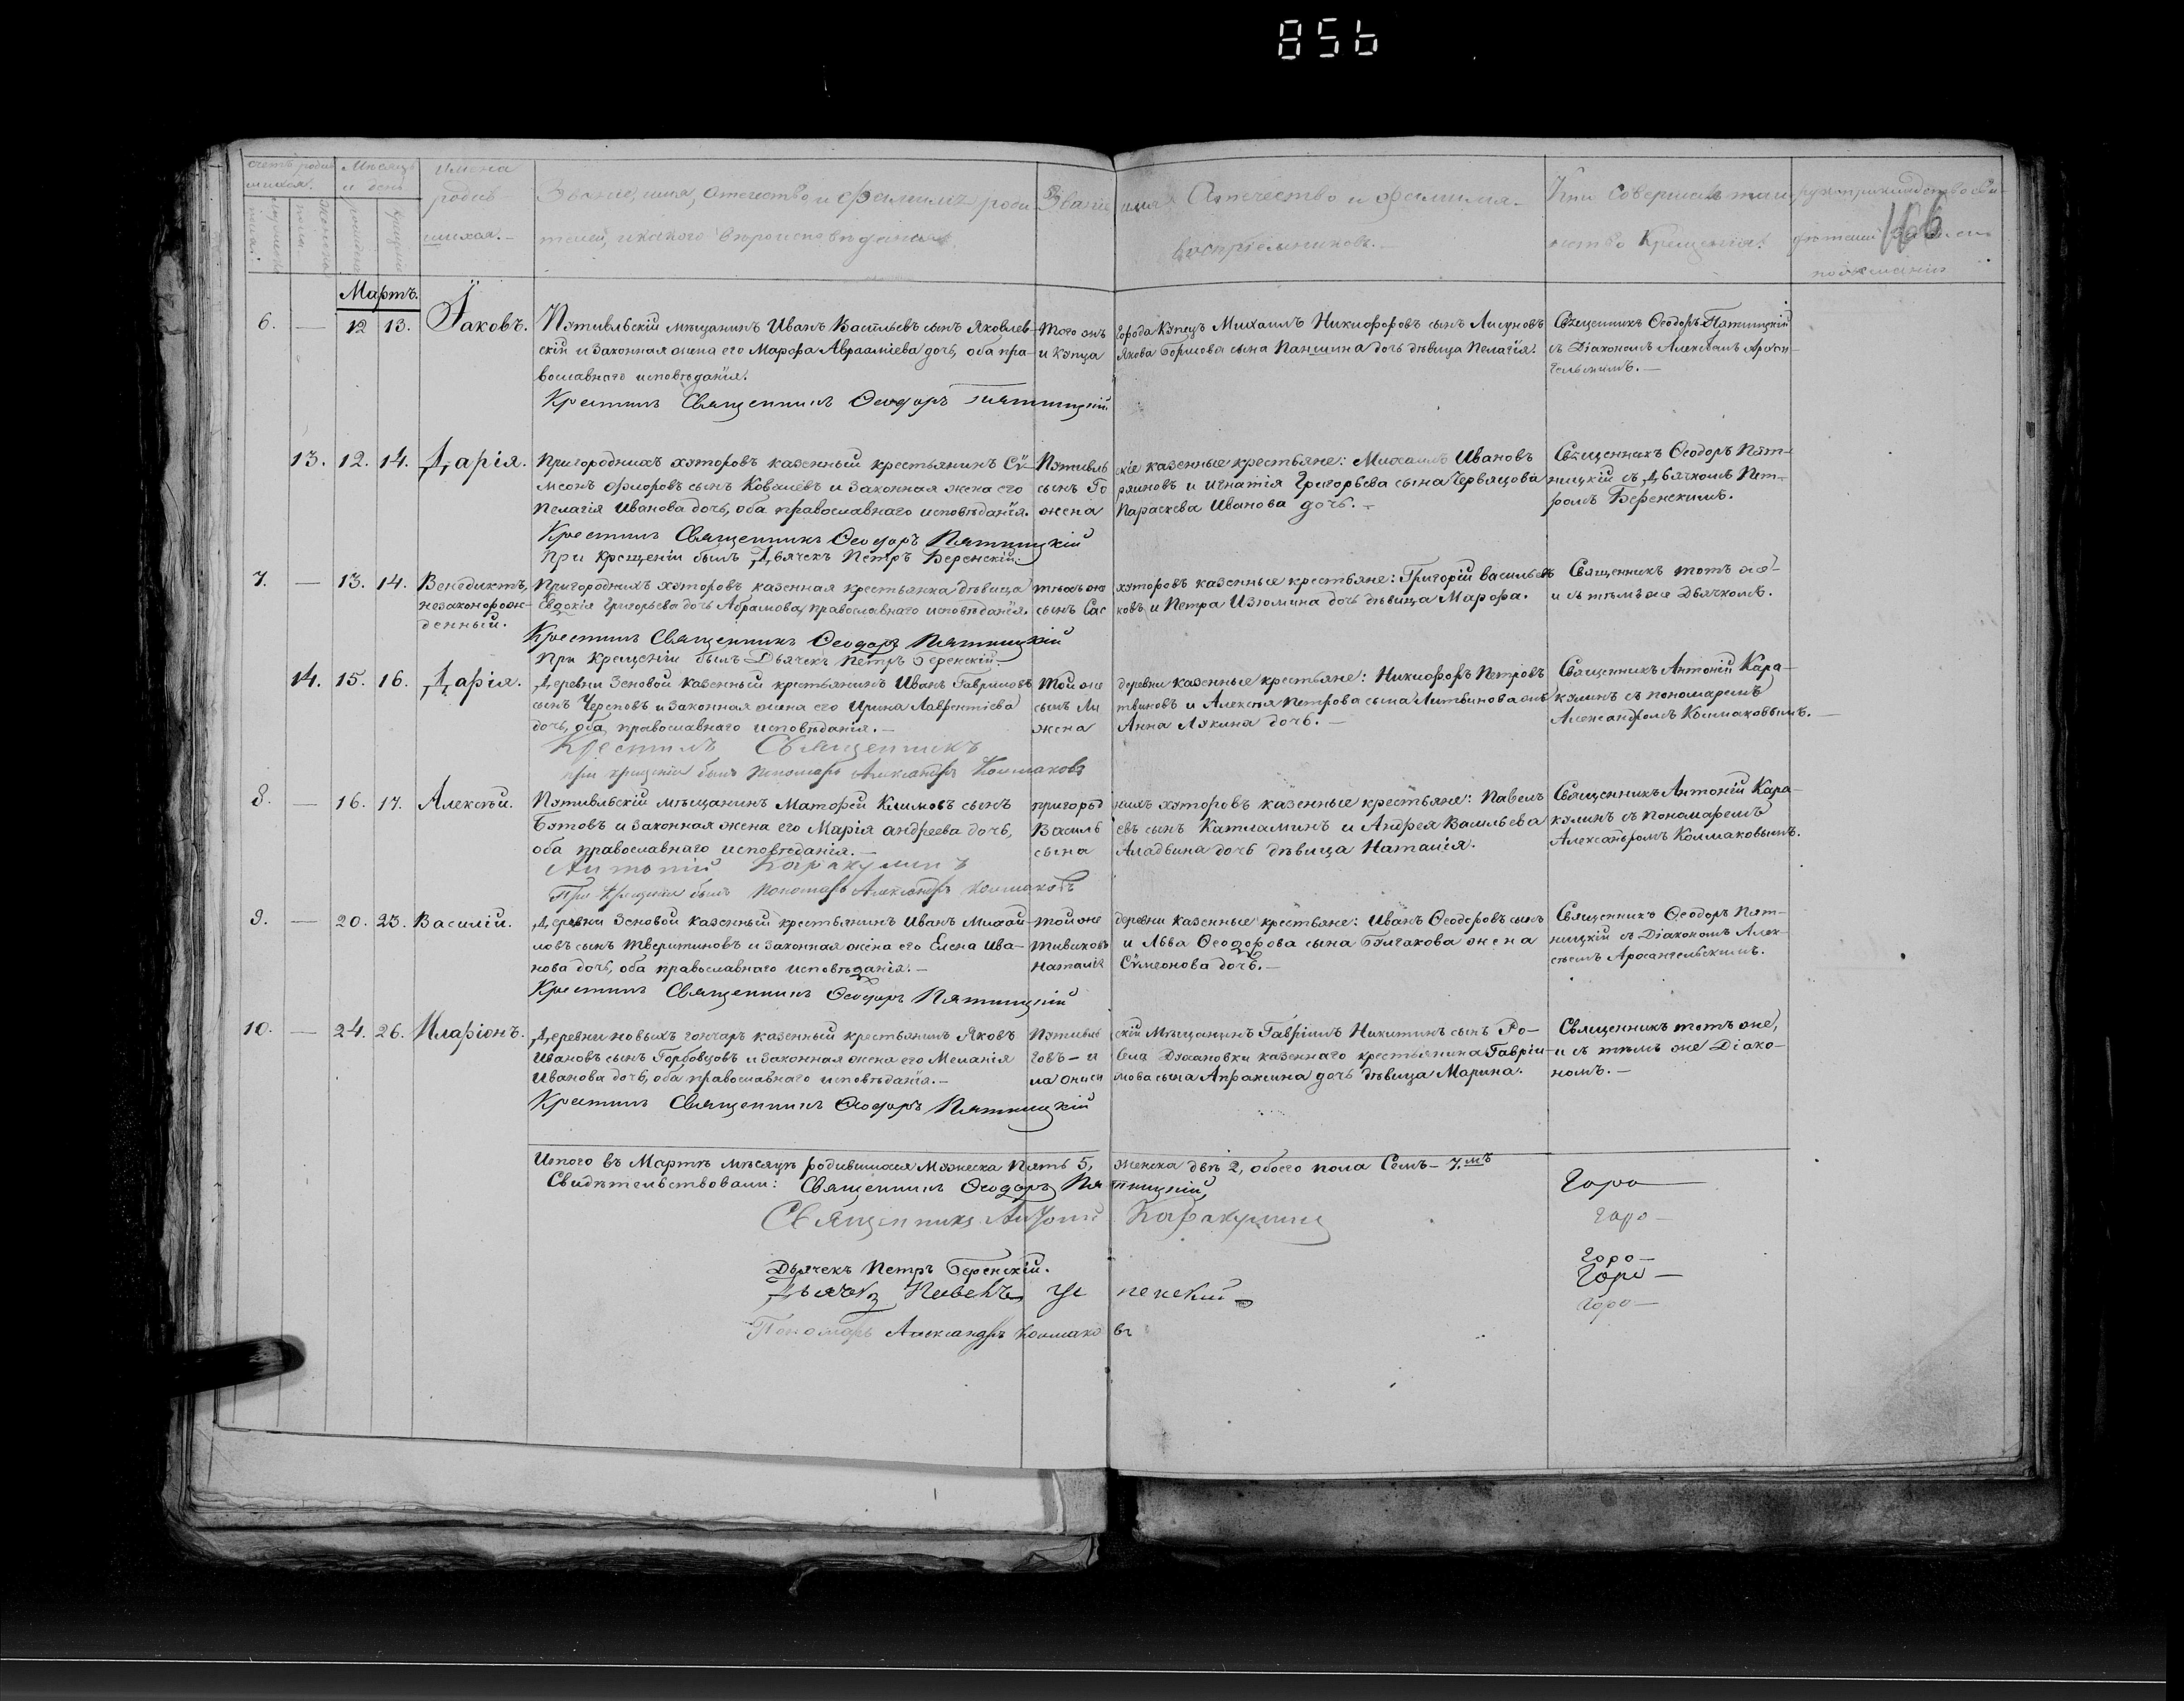 856
166
Счетъ родив
шихся.
Мѣсяцъ
и день
Имена
родив
шихся.
Званіе, имя, Отечество и Фамилія роди
телей, и какого вѣроисповѣданія.
Званіе имя Отечество и Фамилія
воспріемниковъ.
Кто Совершалъ таин
ство Крещенія.
Мартъ.
6. — 12 13. Іаковъ.
Путивльскій мѣщанинъ Иванъ Васильевъ сынъ Яковлев-
скій и Законная жена его Марѳа Аврааміева дочь, оба пра-
вославнаго исповѣданія.
Крестилъ Священникъ Ѳеодоръ Пятницкій
Того жъ города Купецъ Михаилъ Никифоровъ сынъ Лисуновъ
и Купца Якова Борисова сына Паншина дочь дѣвица Пелагія.
Священникъ Ѳеодоръ Пятницкій
съ Діакономъ Алексѣемъ Архан-
гельскимъ. —
13. 12. 14. Дарія.
Пригородныхъ хуторовъ казенный крестьянинъ Сѵ-
меонъ Флоровъ сынъ Ковалевъ и Законная жена его
Пелагія Иванова дочь, оба православнаго исповѣданія.
Крестилъ Священникъ Ѳеодоръ Пятницкій
При крещеніи былъ Дьячекъ Петръ Беренскій.
Путивльскіе казенные крестьяне: Михаилъ Ивановъ
сынъ Горяиновъ и Игнатія Григорьева сына Червяцова
жена Параскева Иванова дочь. —
Священникъ Ѳеодоръ Пят-
ницкій съ Дьячкомъ Пет-
ромъ Беренскимъ.
7. — 13. 14. Венедиктъ,
незаконорож-
денный.
Пригородныхъ хуторовъ казенная крестьянка дѣвица
Евдокія Григорьева дочь Абрамова, православнаго исповѣданія.
Крестилъ Священникъ Ѳеодоръ Пятницкій
При Крещеніи былъ Дьячекъ Петръ Беренскій.
тѣхъ же хуторовъ казенные крестьяне: Григорій Васильевъ
сынъ Сасковъ, и Петра Изюмина дочь дѣвица Марѳа.
Священникъ тотъ же
и съ тѣмъ же Дьячкомъ.
14. 15. 16. Дарія.
Деревни Зеновой казенный крестьянинъ Иванъ Гавриловъ
сынъ Череповъ и Законная жена его Ирина Лаврентіева
дочь, оба православнаго исповѣданія. —
Крестилъ Священникъ
при крещеніи былъ пономарь Александръ Колмаковъ
Той же деревни казенные крестьяне: Никифоръ Петровъ
сынъ Литвиновъ и Алексѣя Петрова сына Литвинова
жена Анна Лукина дочь. —
Священникъ Антоній Кара-
кулинъ съ пономаремъ
Александромъ Колмаковымъ. —
8. — 16. 17. Алексѣй.
Путивльскій мѣщанинъ Матѳей Климовъ сынъ
Бутовъ и Законная жена его Марія Андреева дочь,
оба православнаго исповѣданія. —
Антоній Каракулинъ
При Крещеніи былъ пономарь Александръ Колмаковъ
пригородныхъ хуторовъ казенные крестьяне: Павелъ
Васильевъ сынъ Катламинъ и Андрея Васильева
сына Аладьина дочь дѣвица Наталія.
Священникъ Антоній Кара-
кулинъ съ пономаремъ
Александромъ Колмаковымъ.
9. — 20. 23. Василій.
Деревни Зеновой казенный крестьянинъ Иванъ Михай-
ловъ сынъ Тверитиновъ и Законная жена его Елена Ива-
нова дочь, оба православнаго исповѣданія. —
Крестилъ Священникъ Ѳеодоръ Пятницкій
той же деревни казенные крестьяне: Иванъ Ѳеодоровъ сынъ
Пивиковъ и Льва Ѳеодорова сына Булгакова жена
Наталія Сѵмеонова дочь. —
Священникъ Ѳеодоръ Пят-
ницкій съ Діакономъ Алек-
сѣемъ Архангельскимъ.
10. — 24. 26. Иларіонъ.
Деревни новыхъ гончаръ казенный крестьянинъ Яковъ
Ивановъ сынъ Горбовцовъ и Законная жена его Меланія
Иванова дочь, оба православнаго исповѣданія. —
Крестилъ Священникъ Ѳеодоръ Пятницкій
Путивльскій Мѣщанинъ Гавріилъ Никитинъ сынъ Ро-
говъ — и села Джановки казеннаго крестьянина Гавріи-
ла Онисимова сына Апраксина дочь дѣвица Марина.
Священникъ тотъ же,
и съ тѣмъ же Діако-
номъ. —
Итого въ Мартѣ мѣсяцѣ родившихся Мужеска Пять 5, женска двѣ 2, обоего пола Семь — 7мь
Свидѣтельствовали: Священникъ Ѳеодоръ Пятницкій,
Священникъ Антоній Каракулинъ
Дьячекъ Петръ Беренскій.
Дьячекъ Успенскій
Пономарь Александръ Колмаковъ